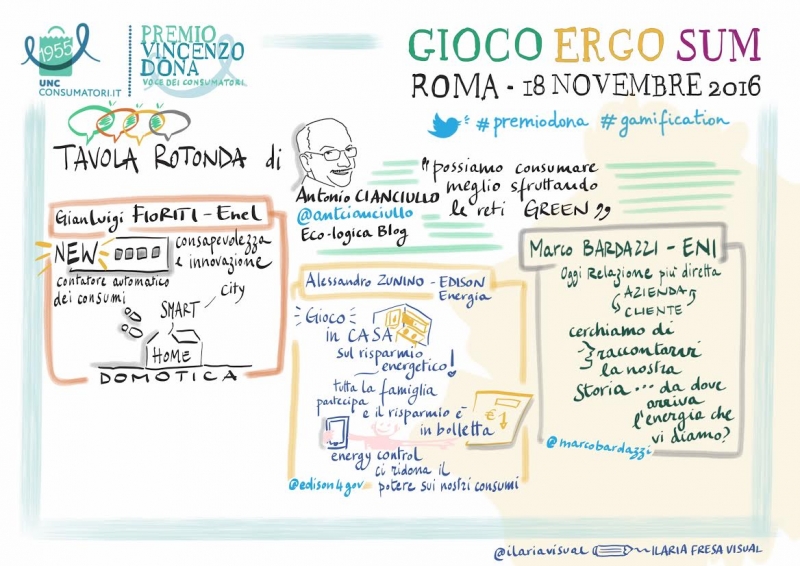 1955
UNC
CONSUMATORI.IT
PREMIO
VINCENZO
DONA
VOCE DEI CONSUMATORI
GIOCO ERGO SUM
ROMA - 18 NOVEMBRE 2016
#premiodona #gamification
TAVOLA ROTONDA di
Antonio CIANCIULLO
@antcianciullo
Eco-logica Blog
"possiamo consumare
meglio sfruttando
le reti GREEN"
Gianluigi FIORITI - Enel
NEW
consapevolezza
e innovazione
contatore automatico
dei consumi
SMART
city
HOME
DOMOTICA
Alessandro ZUNINO - EDISON
Energia
Gioco
in CASA
sul risparmio
energetico!
tutta la famiglia
partecipa
e il risparmio è
in bolletta
€↓
energy control
ci ridona il
potere sui nostri consumi
@edison4gov
Marco BARDAZZI - ENI
Oggi Relazione più diretta
AZIENDA
CLIENTE
cerchiamo di
raccontarvi
la nostra
storia ... da dove
arriva
l'energia che
vi diamo?
@marcobardazzi
@ilariavisual ILARIA FRESA VISUAL